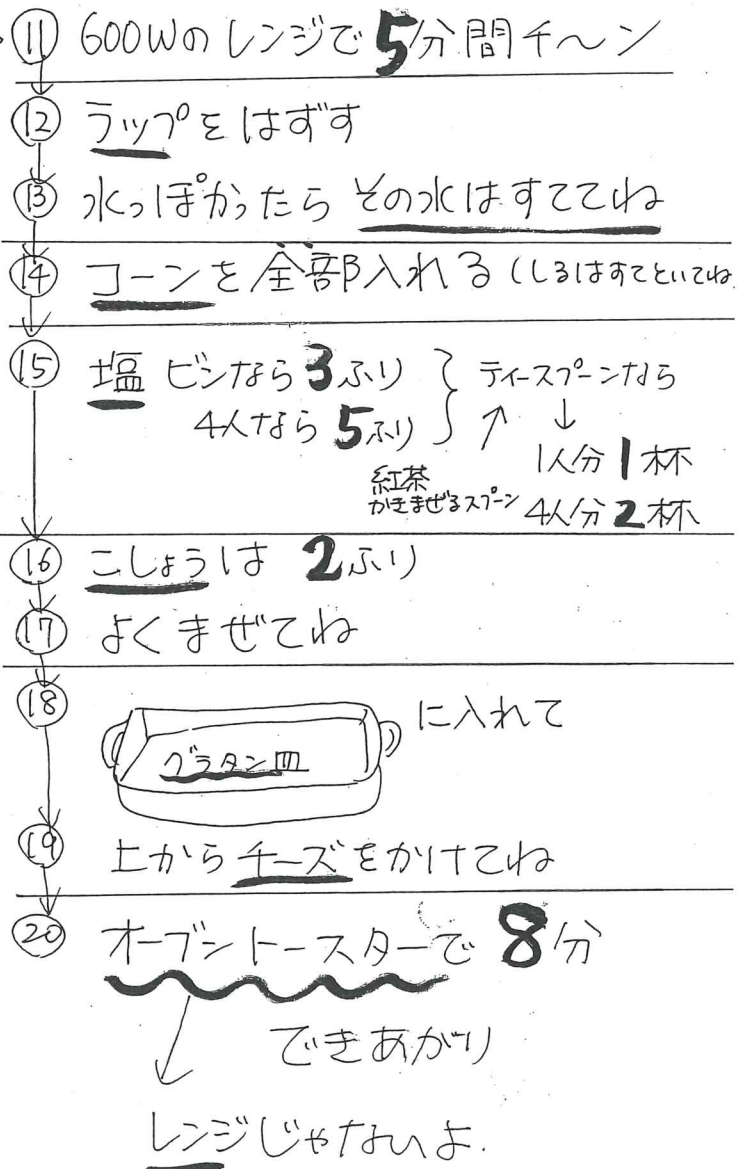 ⑪ 600Wのレンジで5分間チ〜ン
⑫ ラップをはずす
⑬ 水っぽかったらその水はすててね
⑭ コーンを全部入れる(しるはすてといてね
⑮ 塩 ビンなら3ふり
4人なら5ふり
ティースプーンなら
↑ ↓
紅茶
かきまぜるスプーン
1人分1杯
4人分2杯
⑯ こしょうは2ふり
⑰ よくまぜてね
⑱ グラタン皿 に入れて
⑲ 上からチーズをかけてね
⑳ オーブントースターで8分
できあがり
レンジじゃないよ.